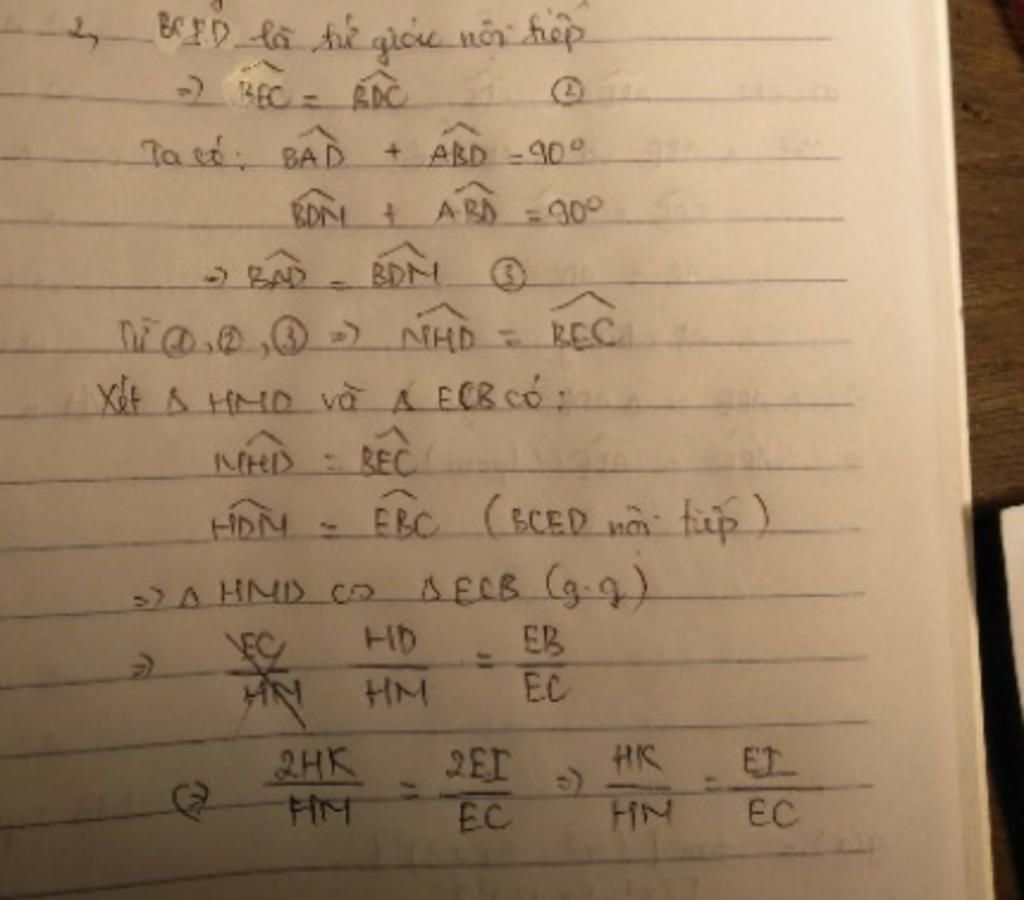 2, BCED là tứ giác nội tiếp
=> BEC = BDC ②
Ta có: BAD + ABD = 90°
BDM + ABD = 90°
=> BAD = BDM ③
Từ ①, ②, ③ => MHD = BEC
Xét Δ HMD và Δ ECB có:
MHD = BEC
HDM = EBC (BCED nội tiếp)
=> Δ HMD ∽ Δ ECB (g.g)
=> EC/HM HD/HM = EB/EC
<=> 2HK/HM = 2EI/EC => HK/HM = EI/EC